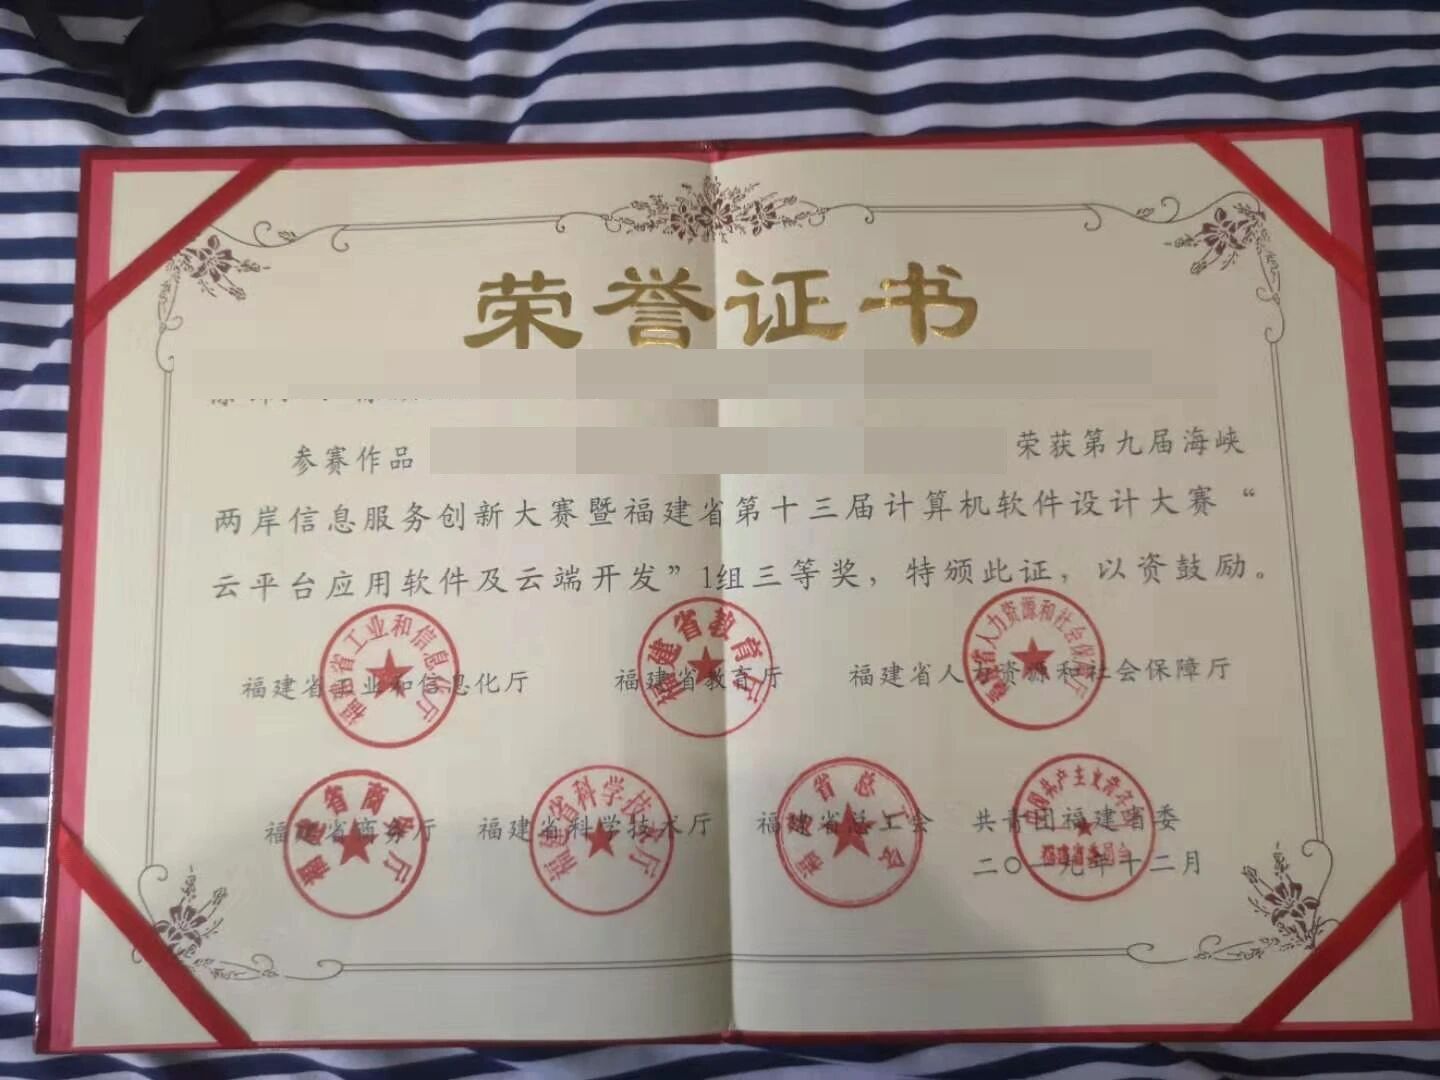 荣誉证书
参赛作品 荣获第九届海峡
两岸信息服务创新大赛暨福建省第十三届计算机软件设计大赛“
云平台应用软件及云端开发”1组三等奖，特颁此证，以资鼓励。
福建省工业和信息化厅 福建省教育厅 福建省人力资源和社会保障厅
福建省工业和信息化厅
福建省教育厅
福建省人力资源和社会保障厅
福建省商务厅 福建省科学技术厅 福建省总工会 共青团福建省委
二〇一九年十二月
福建省商务厅
福建省科学技术厅
福建省总工会
中国共产主义青年团
福建省委员会